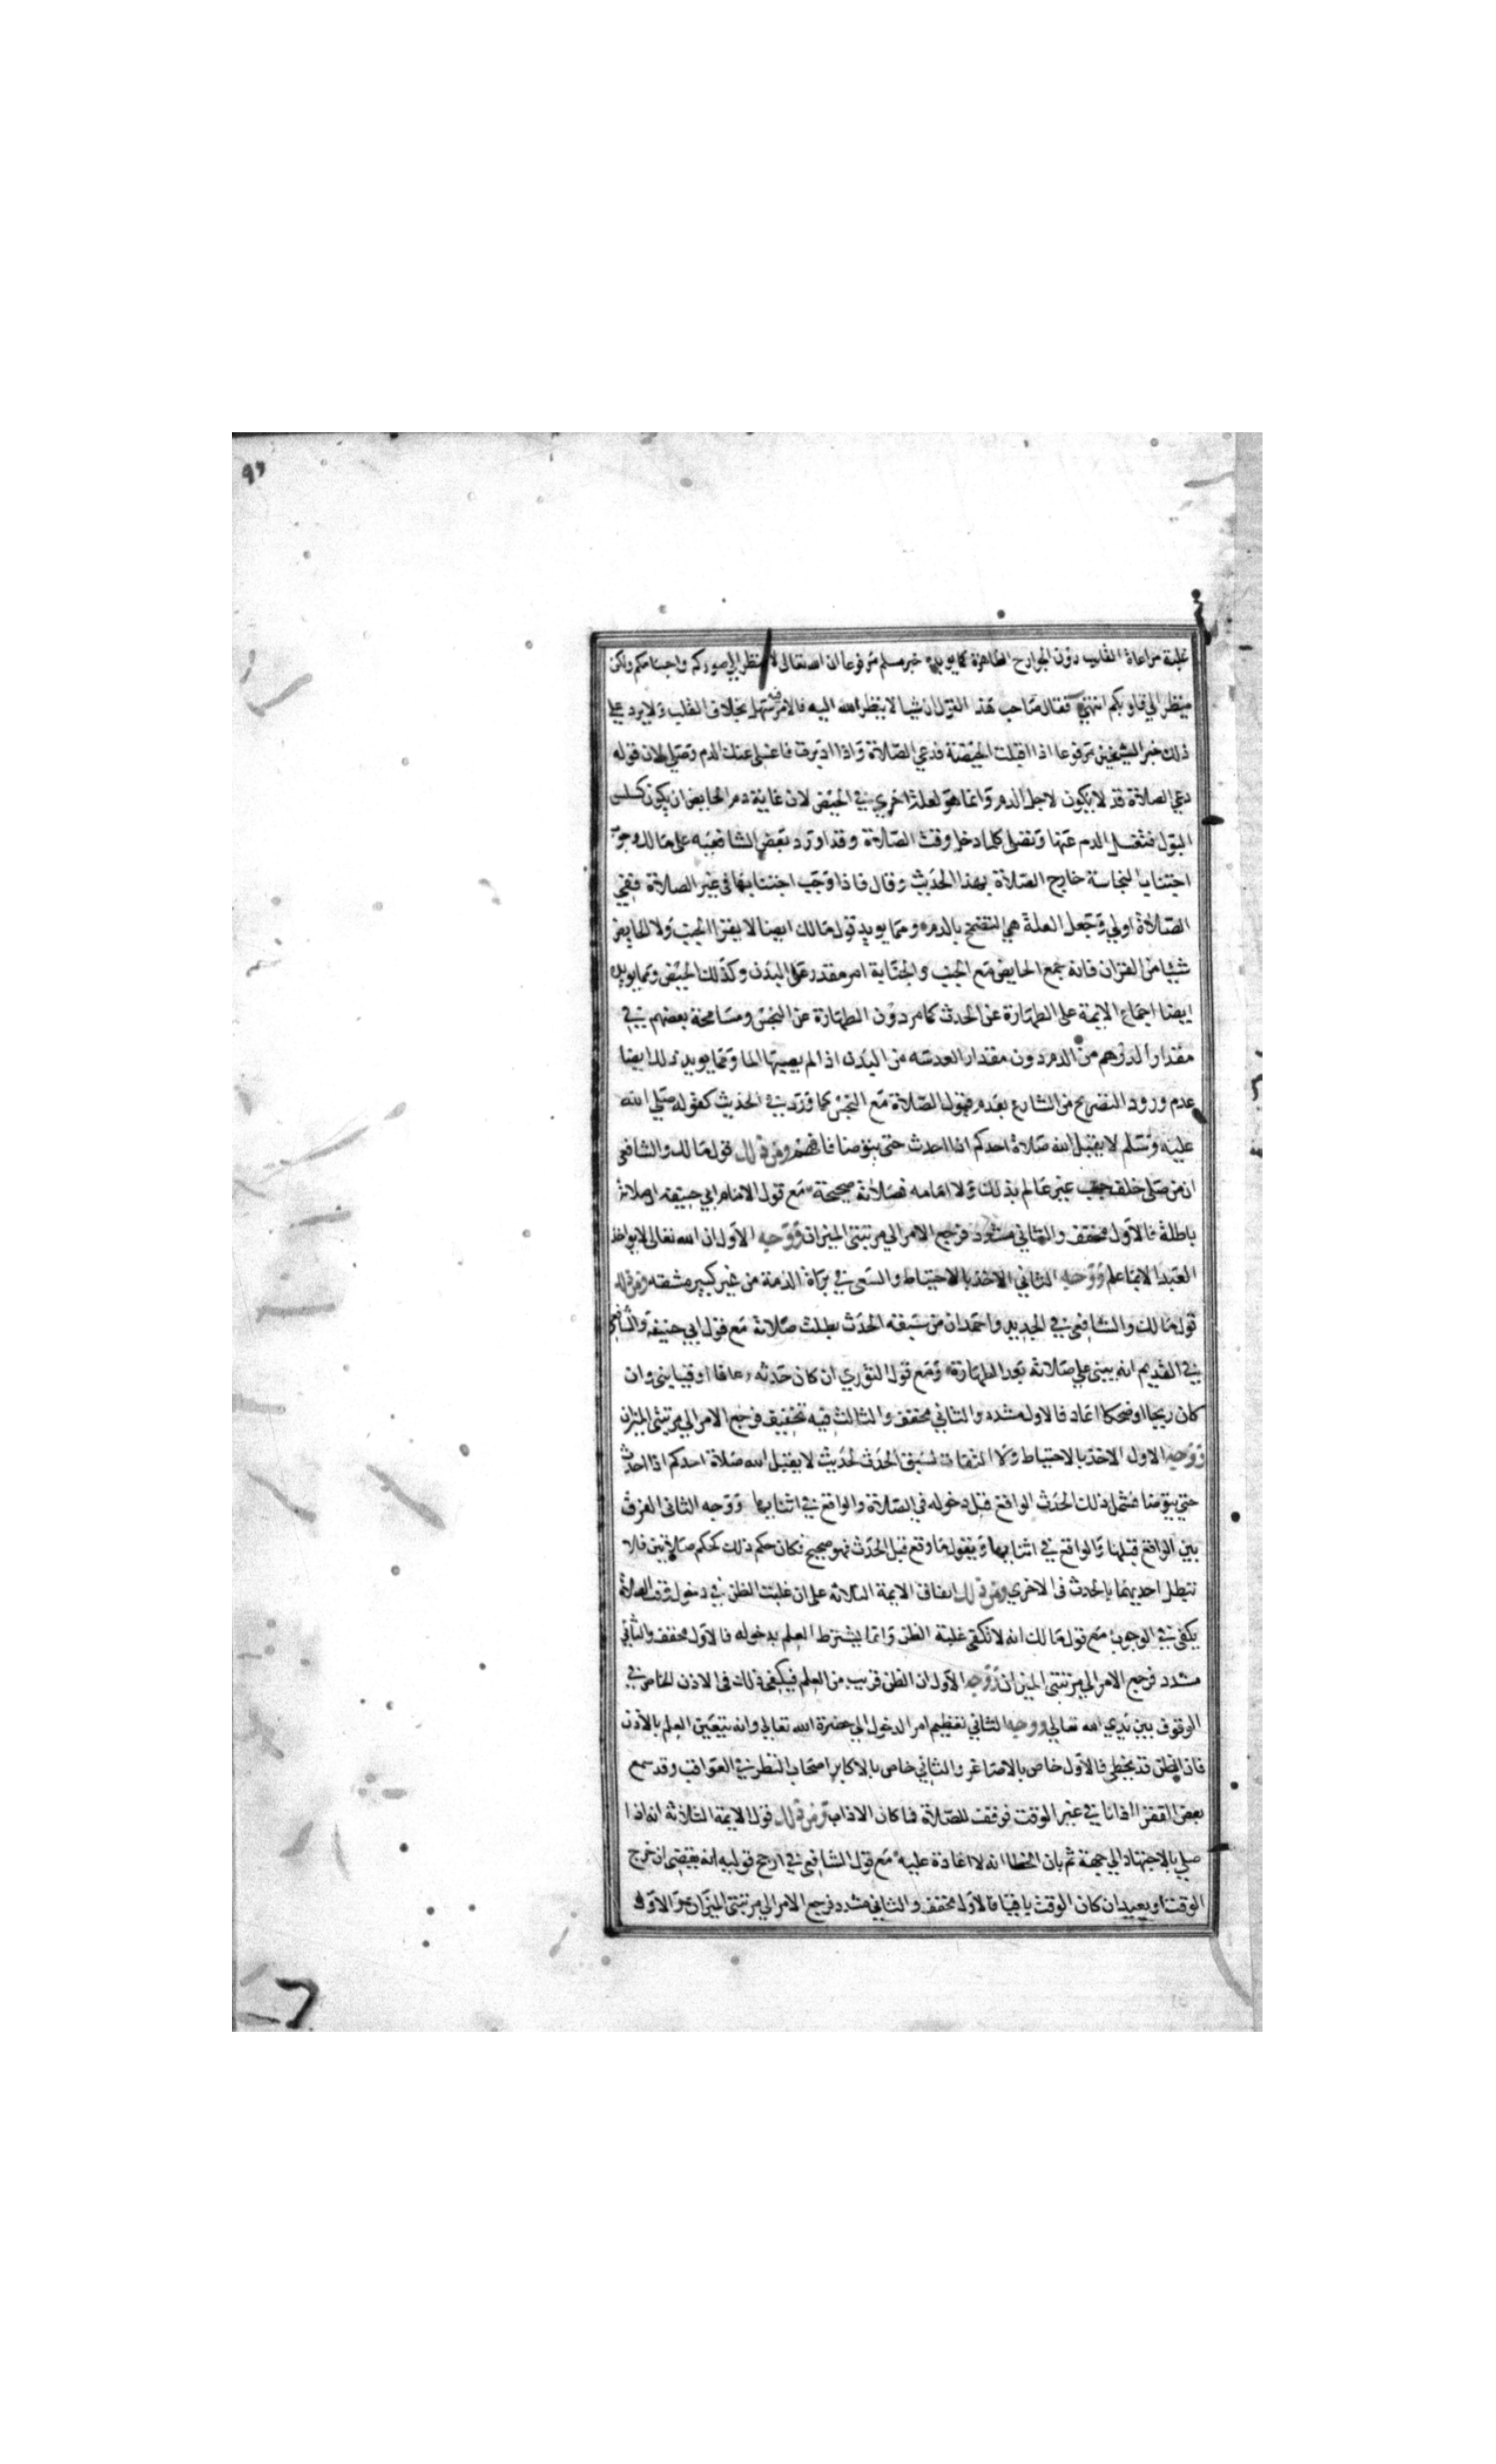 ٩٦
غلبة مراعاة القلب دون الجوارح الظاهرة كما يويده خبر مسلم مرفوعا ان الله تعالى لا ينظر الي صوركم واجسامكم ولكن
ينظر الي قلوبكم انتهي فقال صاحب هذا القول ان شيا لا ينظر الله اليه فالامر فيه سهل بخلاف القلب ولا يرد علي
ذلك خبر الشيخين مرفوعا اذا اقبلت الحيضة فدعي الصلاة واذا ادبرت فاغسلي عنك الدم وصلي لان قوله
دعي الصلاة قد لا يكون لاجل الدم وانما هو لعلة اخري في الحيض لان غاية دم الحايض ان يكون كسلس
البول فتغسل الدم عنها وتصلي كلما دخل وقت الصلاة وقد اورد بعض الشافعيه على مالك وجوب
اجتناب النجاسة خارج الصلاة بهذا الحديث وقال فاذا وجب اجتنابها في غير الصلاة ففي
الصلاة اولي وجعل العلة هي التضمخ بالدم ومما يويد قول مالك ايضا لا يقرا الجنب ولا الحايض
شيئا من القران فانه جمع الحايض مع الجنب والجنابة امر مقدر على البدن وكذلك الحيض ومما يويده
ايضا اجماع الايمة على الطهارة عن الحدث كما مر دون الطهارة عن النجس ومسامحة بعضهم في
مقدار الدرهم من الدم دون مقدار العدسه من البدن اذا لم يصبها الما ومما يويد ذلك ايضا
عدم ورود التصريح من الشارع بعدم قبول الصلاة مع النجس كما ورد في الحديث كقوله صلي الله
عليه وسلم لا يقبل الله صلاة احدكم اذا احدث حتى يتوضا فافهم ومن ذلك قول مالك والشافعي
ان من صلى خلف جنب غير عالم بذلك ولا امامه فصلاته صحيحة مع قول الامام ابي حنيفه ان صلاته
باطلة فالاول مخفف والثاني مشدد فرجع الامر الي مرتبتي الميزان ووجه الاول ان الله تعالى لا يواخذ
العبد الا بما علم ووجه الثاني الاخذ بالاحتياط والسعي في براة الذمة من غير كبير مشقه ومن ذلك
قول مالك والشافعي في الجديد واحمد ان من سبقه الحدث بطلت صلاته مع قول ابي حنيفه والشافعي
في القديم انه يبني علي صلاته بعد الطهارة ومع قول الثوري ان كان حدثه رعافا او قيا يبني وان
كان ريحا او ضحكا اعاد فالاول مشدد والثاني مخفف والثالث فيه تخفيف فرجع الامر الي مرتبتي الميزان
ووجه الاول الاخذ بالاحتياط ولا التفات لسبق الحدث لحديث لا يقبل الله صلاة احدكم اذا احدث
حتي يتوضا فشمل ذلك الحدث الواقع قبل دخوله في الصلاة والواقع في اثنايها ووجه الثاني الفرق
بين الواقع قبلها والواقع في اثنايها ويقول ما وقع قبل الحدث فهو صحيح فكان حكم ذلك كحكم صلاتين فلا
تبطل احديهما بالحدث في الاخري ومن ذلك اتفاق الايمة الثلاثه على ان غلبت الظن في دخول وقت الصلاة
يكفي في الوجوب مع قول مالك انه لا تكفي غلبة الظن وانما يشترط العلم بدخوله فالاول مخفف والثاني
مشدد فرجع الامر الي مرتبتي الميزان ووجه الاول ان الظن قريب من العلم فيكفي ذلك في الاذن الخاص في
الوقوف بين يدي الله تعالي ووجه الثاني تعظيم امر الدخول الي حضرة الله تعالي وانه يتعين العلم بالاذن
فان الظن قد يخطي فالاول خاص بالاصاغر والثاني خاص بالاكابر اصحاب النظر في العواقب وقد سمع
بعض الفقرا اذانا في غير الوقت فوقف للصلاة فاكان الاداب ومن ذلك قول الايمة الثلاثة انه اذا
صلي بالاجتهاد الي جهة ثم بان الخطا انه لا اعادة عليه مع قول الشافعي في ارجح قوليه انه يقضي ان خرج
الوقت او يعيد ان كان الوقت باقيا فالاول مخفف والثاني مشدد فرجع الامر الي مرتبتي الميزان ووجه الاول